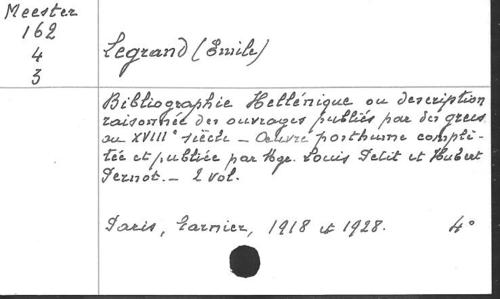 Meester
162
4
3
Legrand (Emile)
Bibliographie Hellénique ou description
raisonnée des ouvrages publiés par des grecs
au XVIII° siècle – Œuvre posthume complé-
tée et publiée par Mgr. Louis Petit et Hubert
Pernot. – 2 vol.
Paris, Garnier, 1918 et 1928. 4°